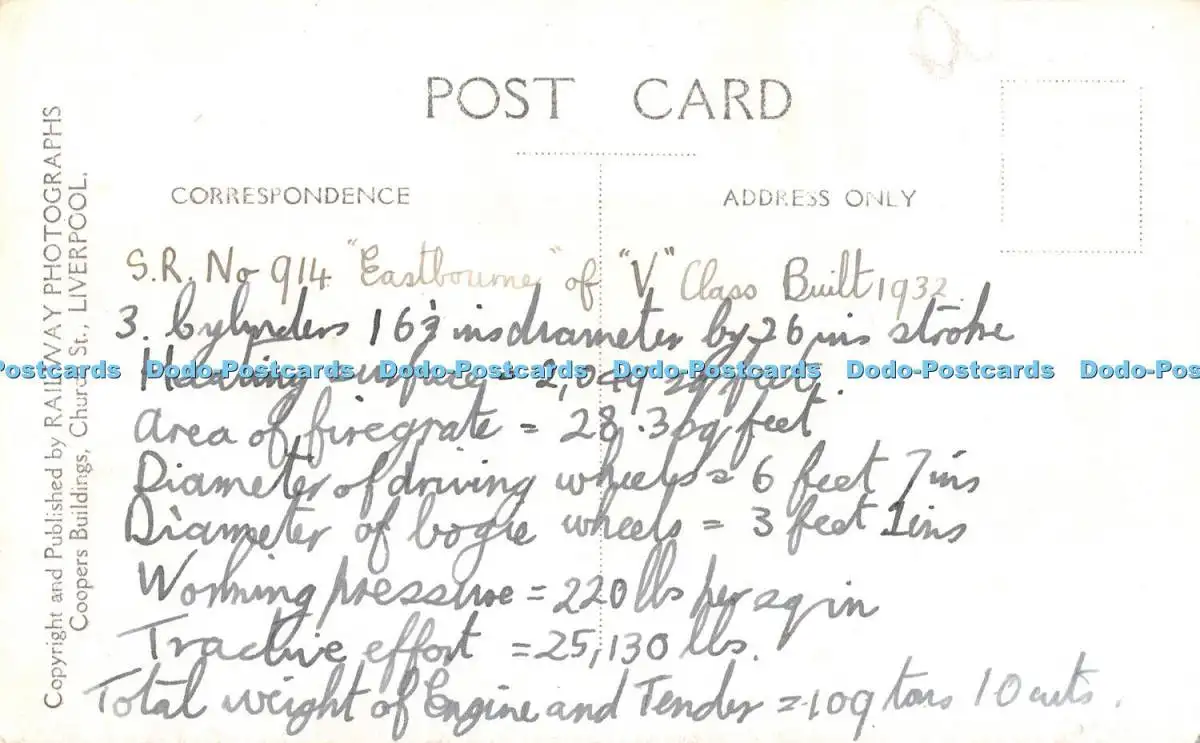 POST CARD
CORRESPONDENCE
ADDRESS ONLY
Copyright and Published by RAILWAY PHOTOGRAPHS
Coopers Buildings, Church St., LIVERPOOL.
S.R. No 914 "Eastbourne" of "V" Class Built 1932
3. Cylinders 16½ ins diameter by 26 ins stroke
Dodo-Postcards Dodo-Postcards Dodo-Postcards Dodo-Postcards Dodo-Postcards Dodo-Pos
Heating surface = sq feet.
Area of firegrate = 28.3 sq feet
Diameter of driving wheels = 6 feet 7 ins
Diameter of bogie wheels = 3 feet 1 ins
Working pressure = 220 lbs per sq in
Tractive effort = 25,130 lbs.
Total weight of Engine and Tender = 109 tons 10 cwts.